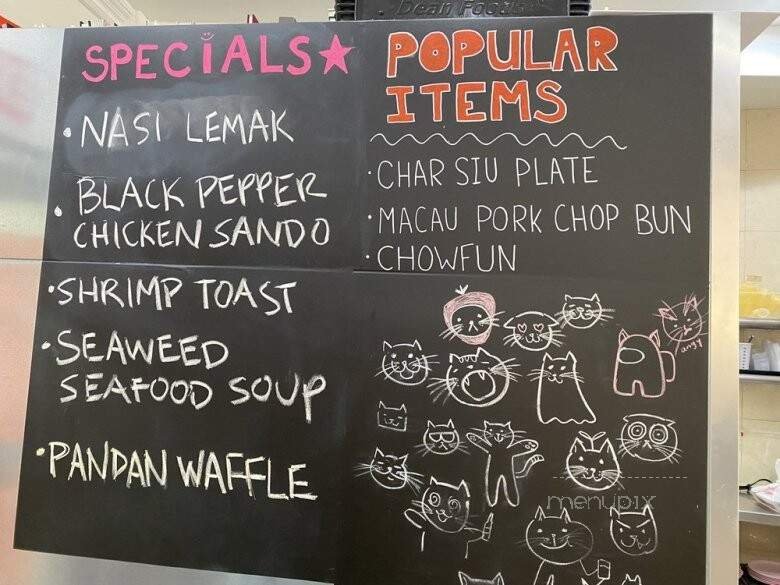 Dean Foods
SPECIALS
• NASI LEMAK
• BLACK PEPPER
CHICKEN SANDO
• SHRIMP TOAST
• SEAWEED
SEAFOOD SOUP
• PANDAN WAFFLE
POPULAR
ITEMS
• CHAR SIU PLATE
• MACAU PORK CHOP BUN
• CHOWFUN
angy
menupix